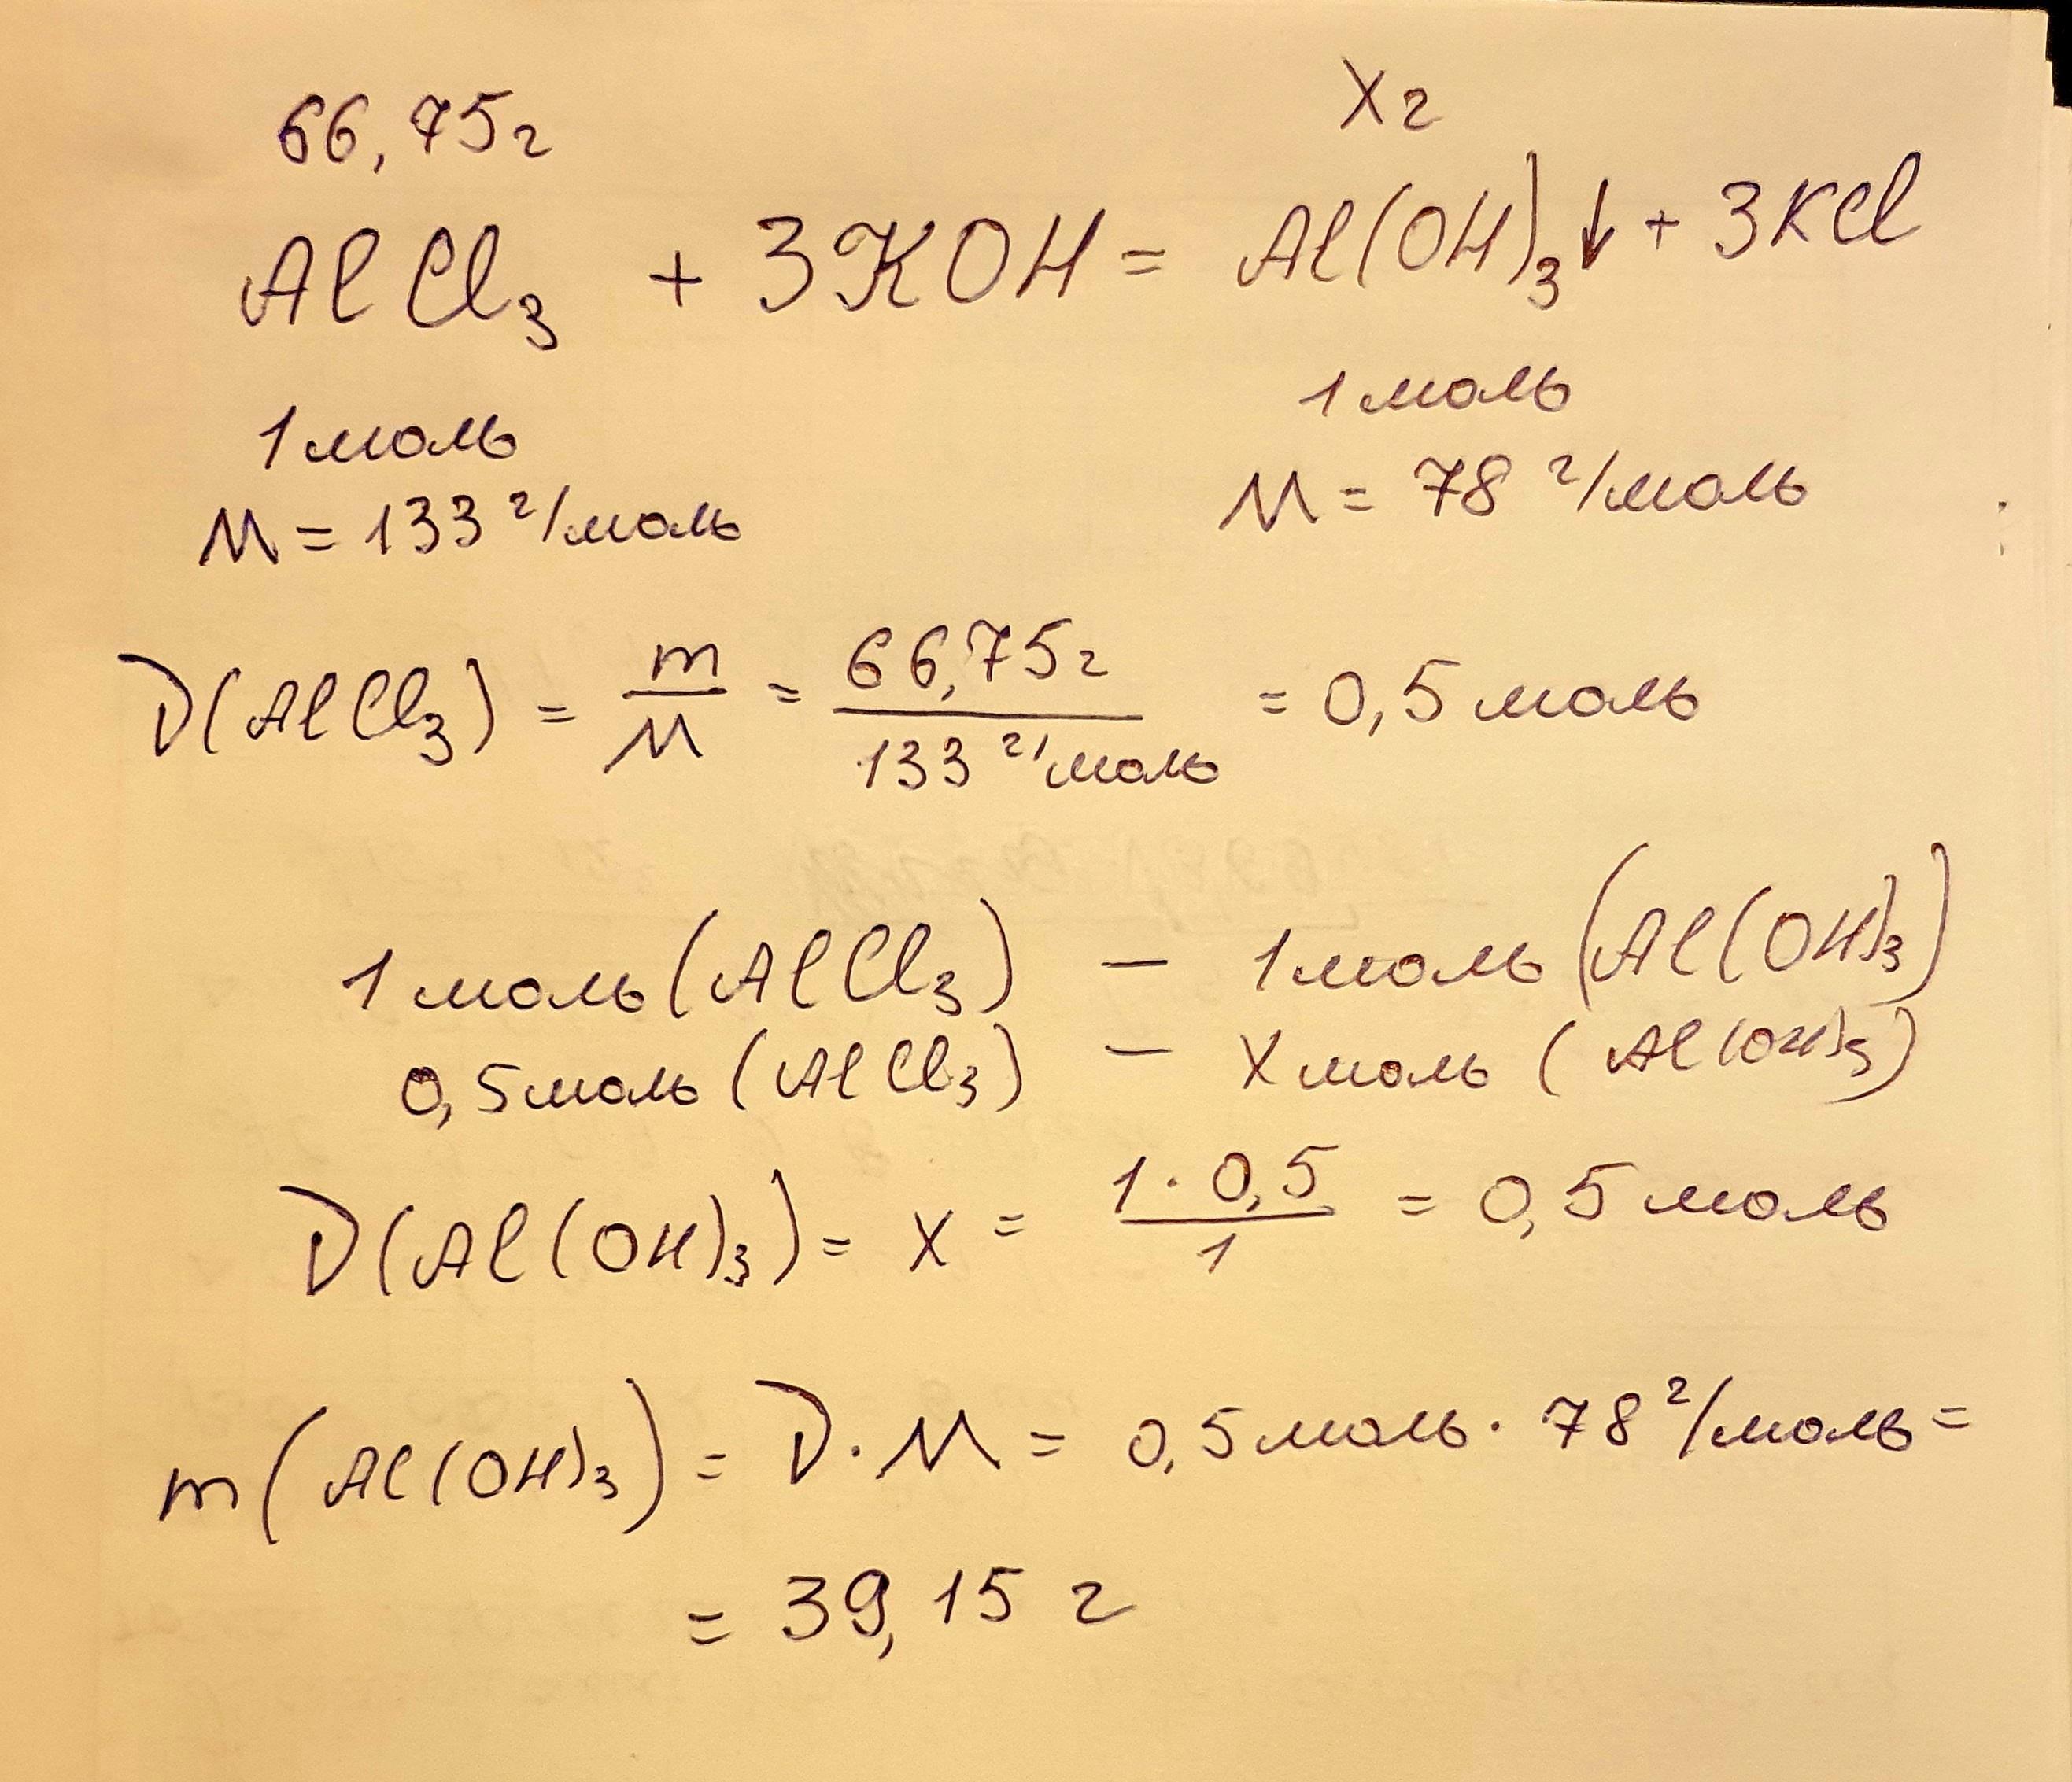 66,75г Xг
AlCl₃ + 3KOH = Al(OH)₃↓ + 3KCl
1 моль 1 моль
M = 133 г/моль M = 78 г/моль
D(AlCl₃) = m/M = 66,75г/133 г/моль = 0,5 моль
1 моль (AlCl₃) — 1 моль (Al(OH)₃)
0,5 моль (AlCl₃) — X моль (Al(OH)₃)
D(Al(OH)₃) = X = 1 · 0,5/1 = 0,5 моль
m(Al(OH)₃) = D · M = 0,5 моль · 78 г/моль =
= 39,15 г